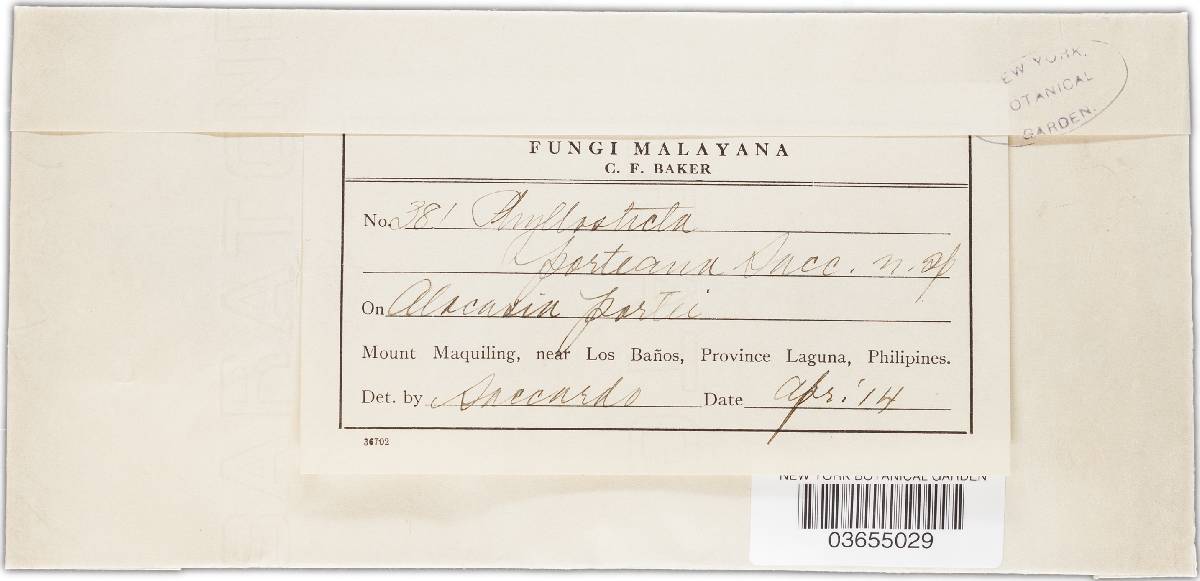 EW YORK.
OTANICAL
GARDEN.
FUNGI MALAYANA
C. F. BAKER
No. 381 Phyllosticta
porteana Sacc. n. sp
On Alocasia portei
Mount Maquiling, near Los Baños, Province Laguna, Philipines.
Det. by Saccardo Date Apr. '14
36702
NEW YORK BOTANICAL GARDEN
03655029